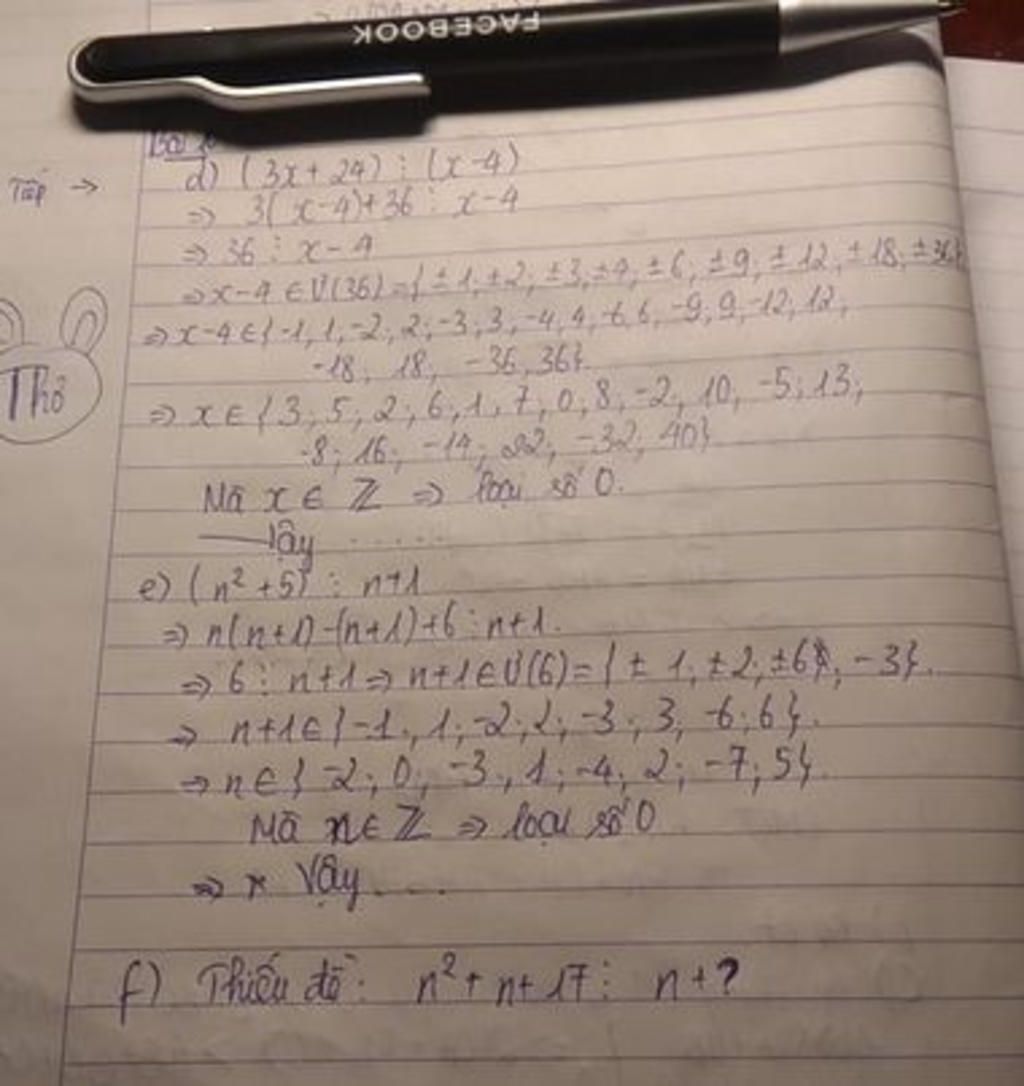 FACEBOOK
Bài
Tiếp →
d) (3x + 24) ⋮ (x - 4)
⇒ 3(x - 4) + 36 ⋮ x - 4
⇒ 36 ⋮ x - 4
⇒ x - 4 ∈ Ư(36) = {±1; ±2; ±3; ±4; ±6; ±9; ±12; ±18; ±36}
⇒ x - 4 ∈ {-1; 1; -2; 2; -3; 3; -4; 4; -6; 6; -9; 9; -12; 12;
-18; 18; -36; 36}.
Thỏ
⇒ x ∈ {3; 5; 2; 6; 1; 7; 0; 8; -2; 10; -5; 13;
-8; 16; -14; 22; -32; 40}
Mà x ∈ ℤ ⇒ loại số 0.
Vậy .....
e) (n² + 5) ⋮ n+1
⇒ n(n+1) - (n+1) + 6 ⋮ n+1.
⇒ 6 ⋮ n+1 ⇒ n+1 ∈ Ư(6) = {±1; ±2; ±6}; -3}.
⇒ n+1 ∈ {-1; 1; -2; 2; -3; 3; -6; 6}.
⇒ n ∈ {-2; 0; -3; 1; -4; 2; -7; 5}.
Mà n ∈ ℤ ⇒ loại số 0
⇒ x Vậy ....
f) Thiếu đề: n² + n + 17 ⋮ n + ?